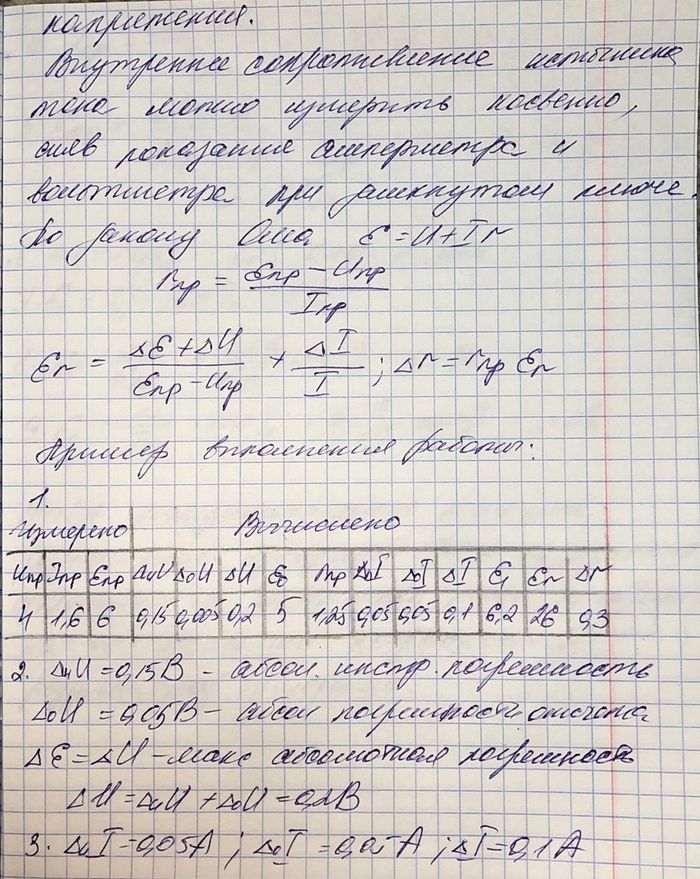 напряжения.
Внутреннее сопротивление источника
тока можно измерить косвенно,
сняв показание амперметра и
вольтметра при замкнутом ключе.
По закону Ома ℰ = U + I r
rпр = (ℰпр − Uпр) / Iпр
ℰr = (Δℰ + ΔU) / (ℰпр − Uпр) + ΔI / I ; Δr = rпр ℰr
Пример выполнения работы:
1.
Измерено Вычислено
Uпр Iпр ℰпр ΔиU ΔоU ΔU ℰ rпр ΔиI ΔоI ΔI ℰ ℰr Δr
4 1,6 6 0,15 0,005 0,2 5 1,25 0,05 0,05 0,1 6,2 26 0,3
2. ΔиU = 0,15В – абсол. инстр. погрешность
ΔоU = 0,05В – абсол погрешность отсчета
Δℰ = ΔU – макс абсолютная погрешность
ΔU = ΔиU + ΔоU = 0,2В
3. ΔиI = 0,05А ; ΔоI = 0,05А ; ΔI = 0,1А